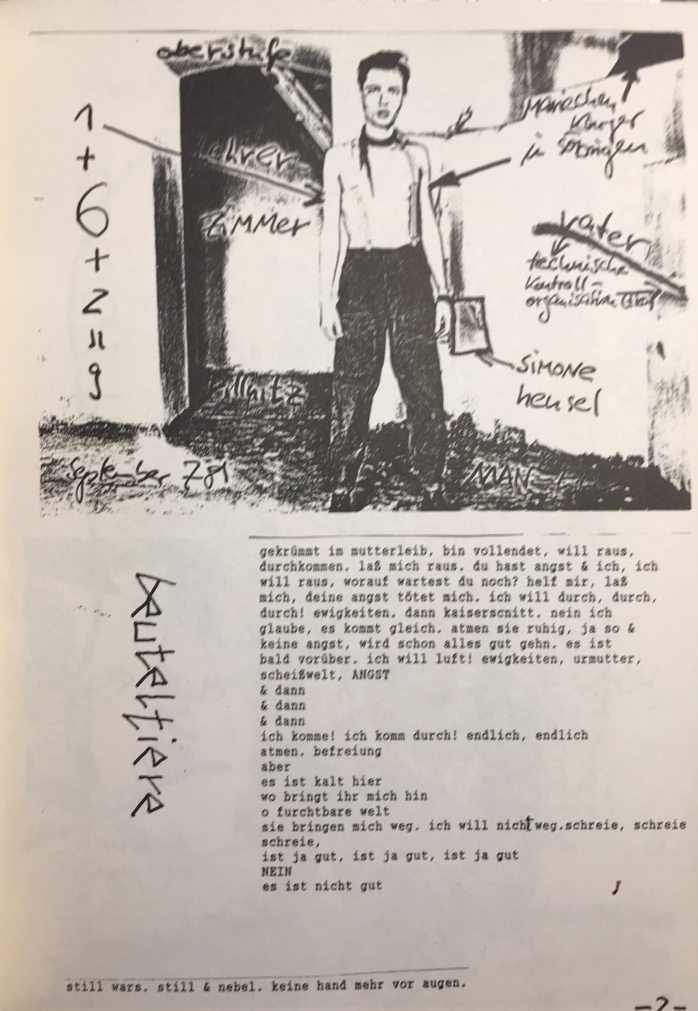 oberstufe
1
+
6
+
2
=
9
Lehrer
ZIMMER
in
vater
technische
Kontroll-
organisation
SIMONE
heusel
pillnitz
September 781
MAN
beuteltiere
gekrümmt im mutterleib, bin vollendet, will raus,
durchkommen. laß mich raus. du hast angst & ich, ich
will raus, worauf wartest du noch? helf mir, laß
mich, deine angst tötet mich. ich will durch, durch,
durch! ewigkeiten. dann kaiserscnitt. nein ich
glaube, es kommt gleich. atmen sie ruhig, ja so &
keine angst, wird schon alles gut gehn. es ist
bald vorüber. ich will luft! ewigkeiten, urmutter,
scheißwelt, ANGST
& dann
& dann
& dann
ich komme! ich komm durch! endlich, endlich
atmen. befreiung
aber
es ist kalt hier
wo bringt ihr mich hin
o furchtbare welt
sie bringen mich weg. ich will nicht weg.schreie, schreie
schreie,
ist ja gut, ist ja gut, ist ja gut
NEIN
es ist nicht gut
still wars. still & nebel. keine hand mehr vor augen.
-2-